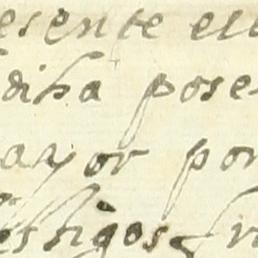 esente es
diha pose
ayor por
estigos